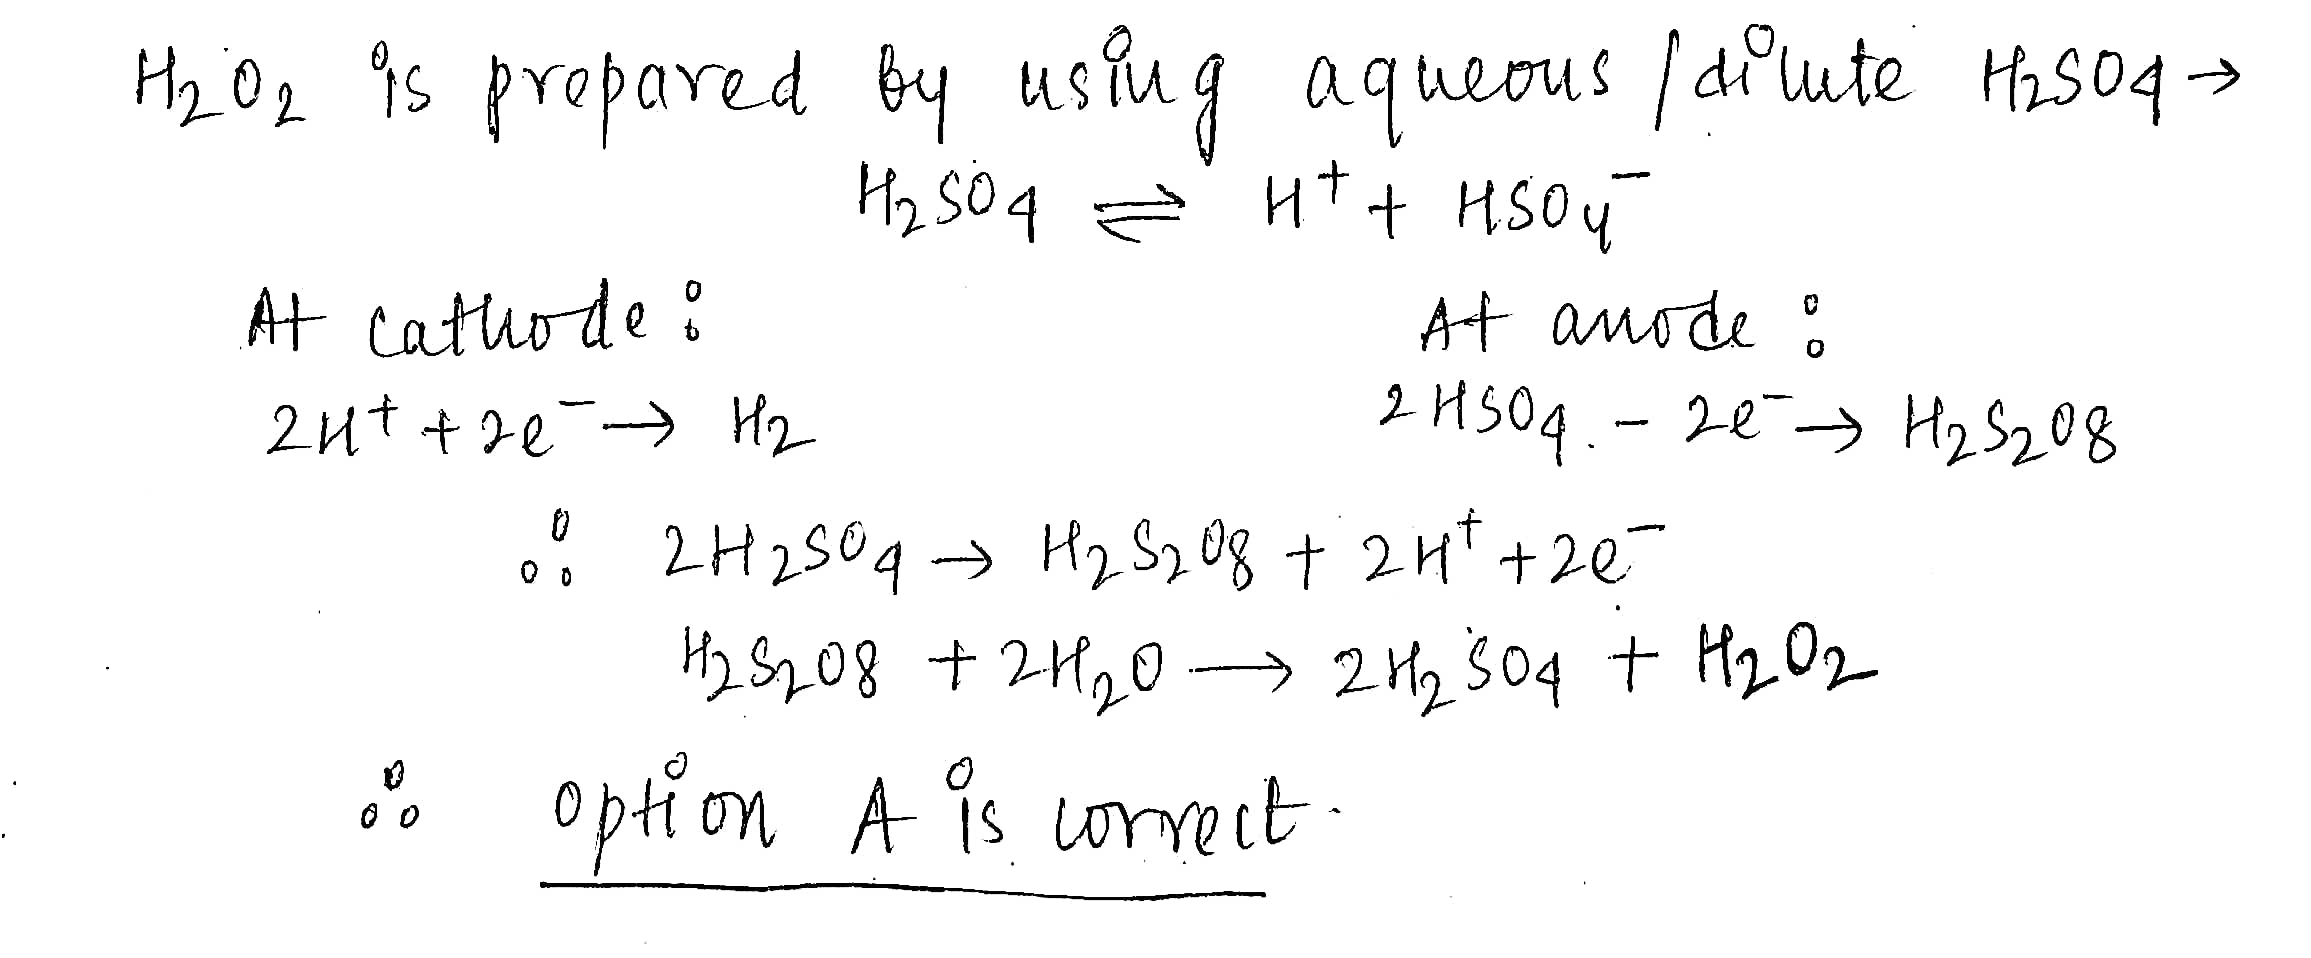 H2O2 is prepared by using aqueous / dilute H2SO4 →
H2SO4 ⇌ H⁺ + HSO4⁻
At cathode :
At anode :
2H⁺ + 2e⁻ → H2
2HSO4 - 2e⁻ → H2S2O8
∴ 2H2SO4 → H2S2O8 + 2H⁺ + 2e⁻
H2S2O8 + 2H2O → 2H2SO4 + H2O2
∴ option A is correct.